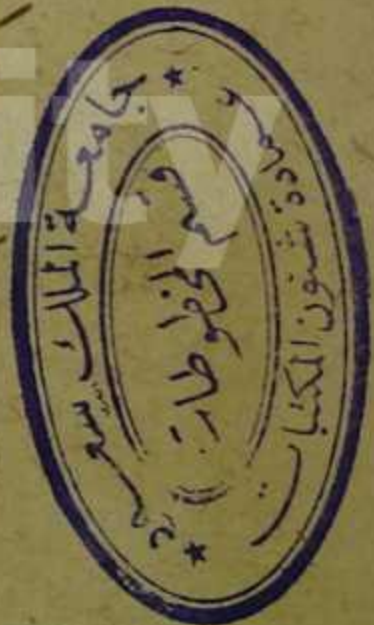 جامعة الملك سعود
قسم المخطوطات
عمادة شئون المكتبات
ity